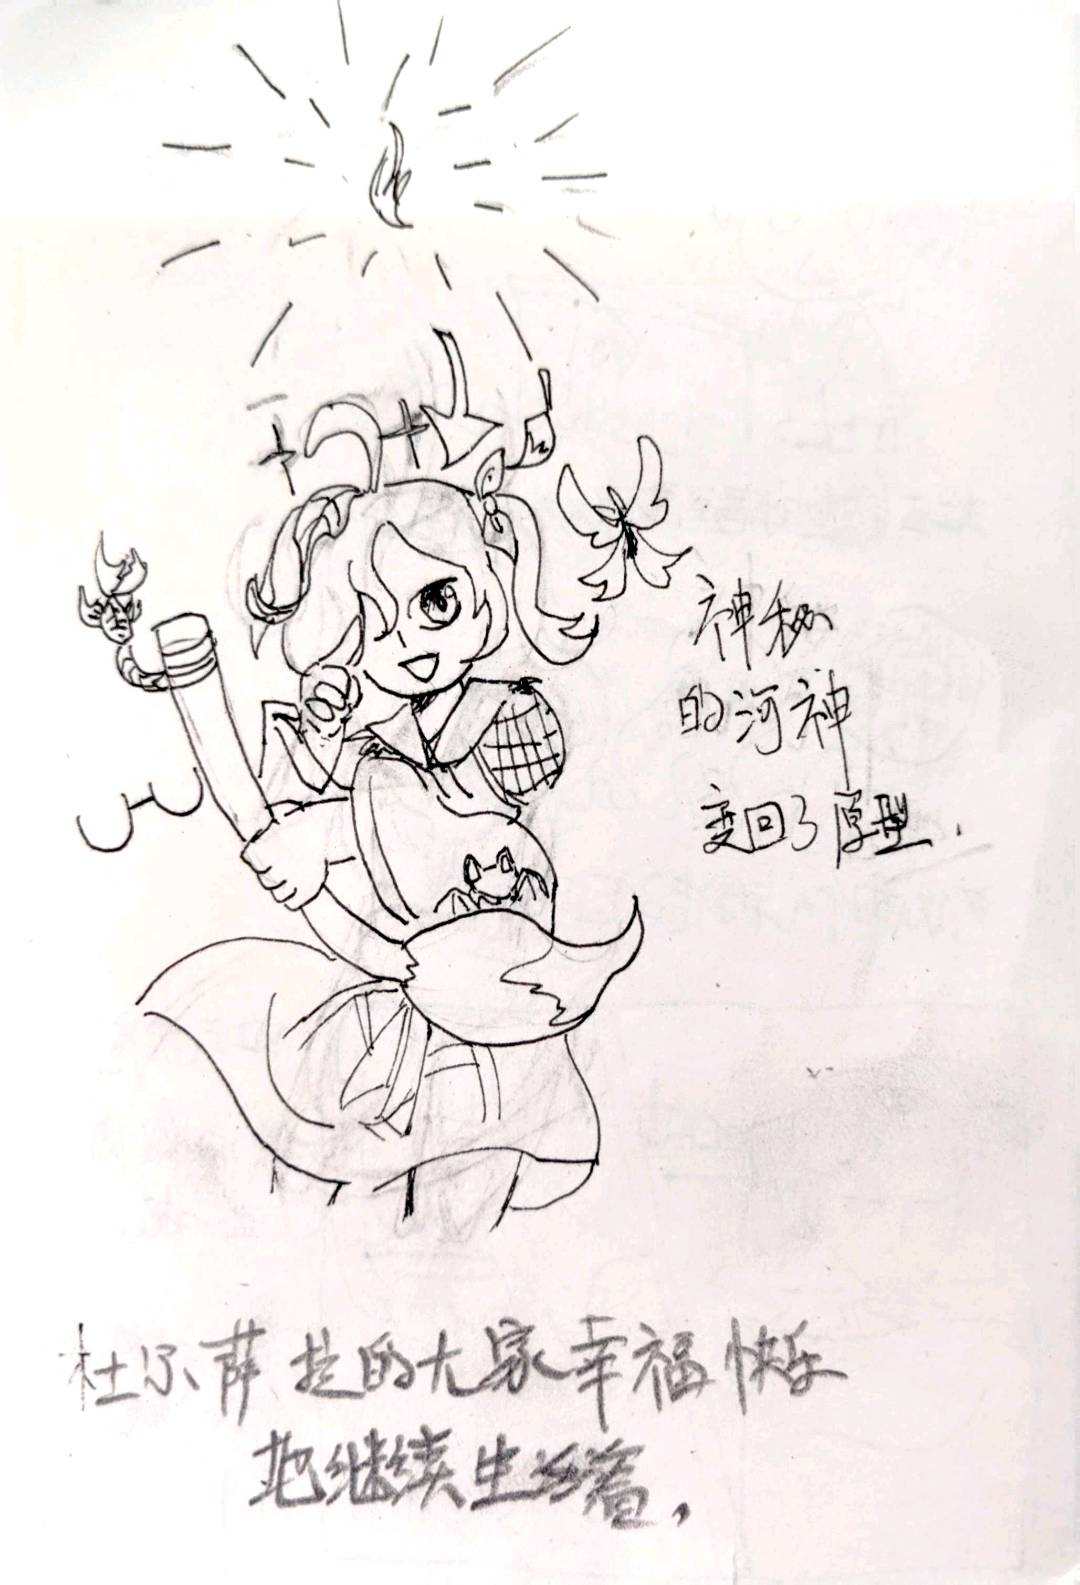 神秘
的河神
变回了原型.
杜尔萨拉的大家幸福快乐
地继续生活着,